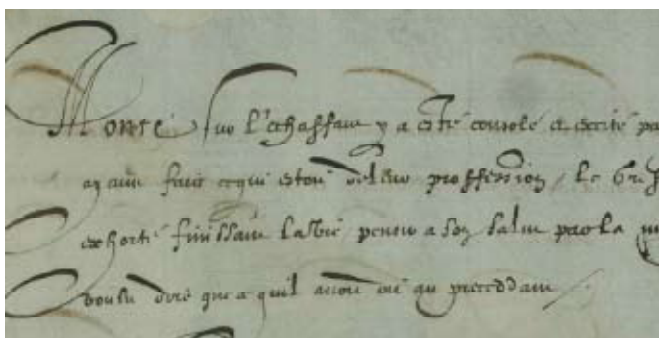 Monté sur l'echaffaut y a esté consolé et excité pa
ayant faict ce qui estoit de leur proffession, le Gref
exhorté finissant la vie penser a son salut par la
voulu dire que ce quil avoit dit cy precedam